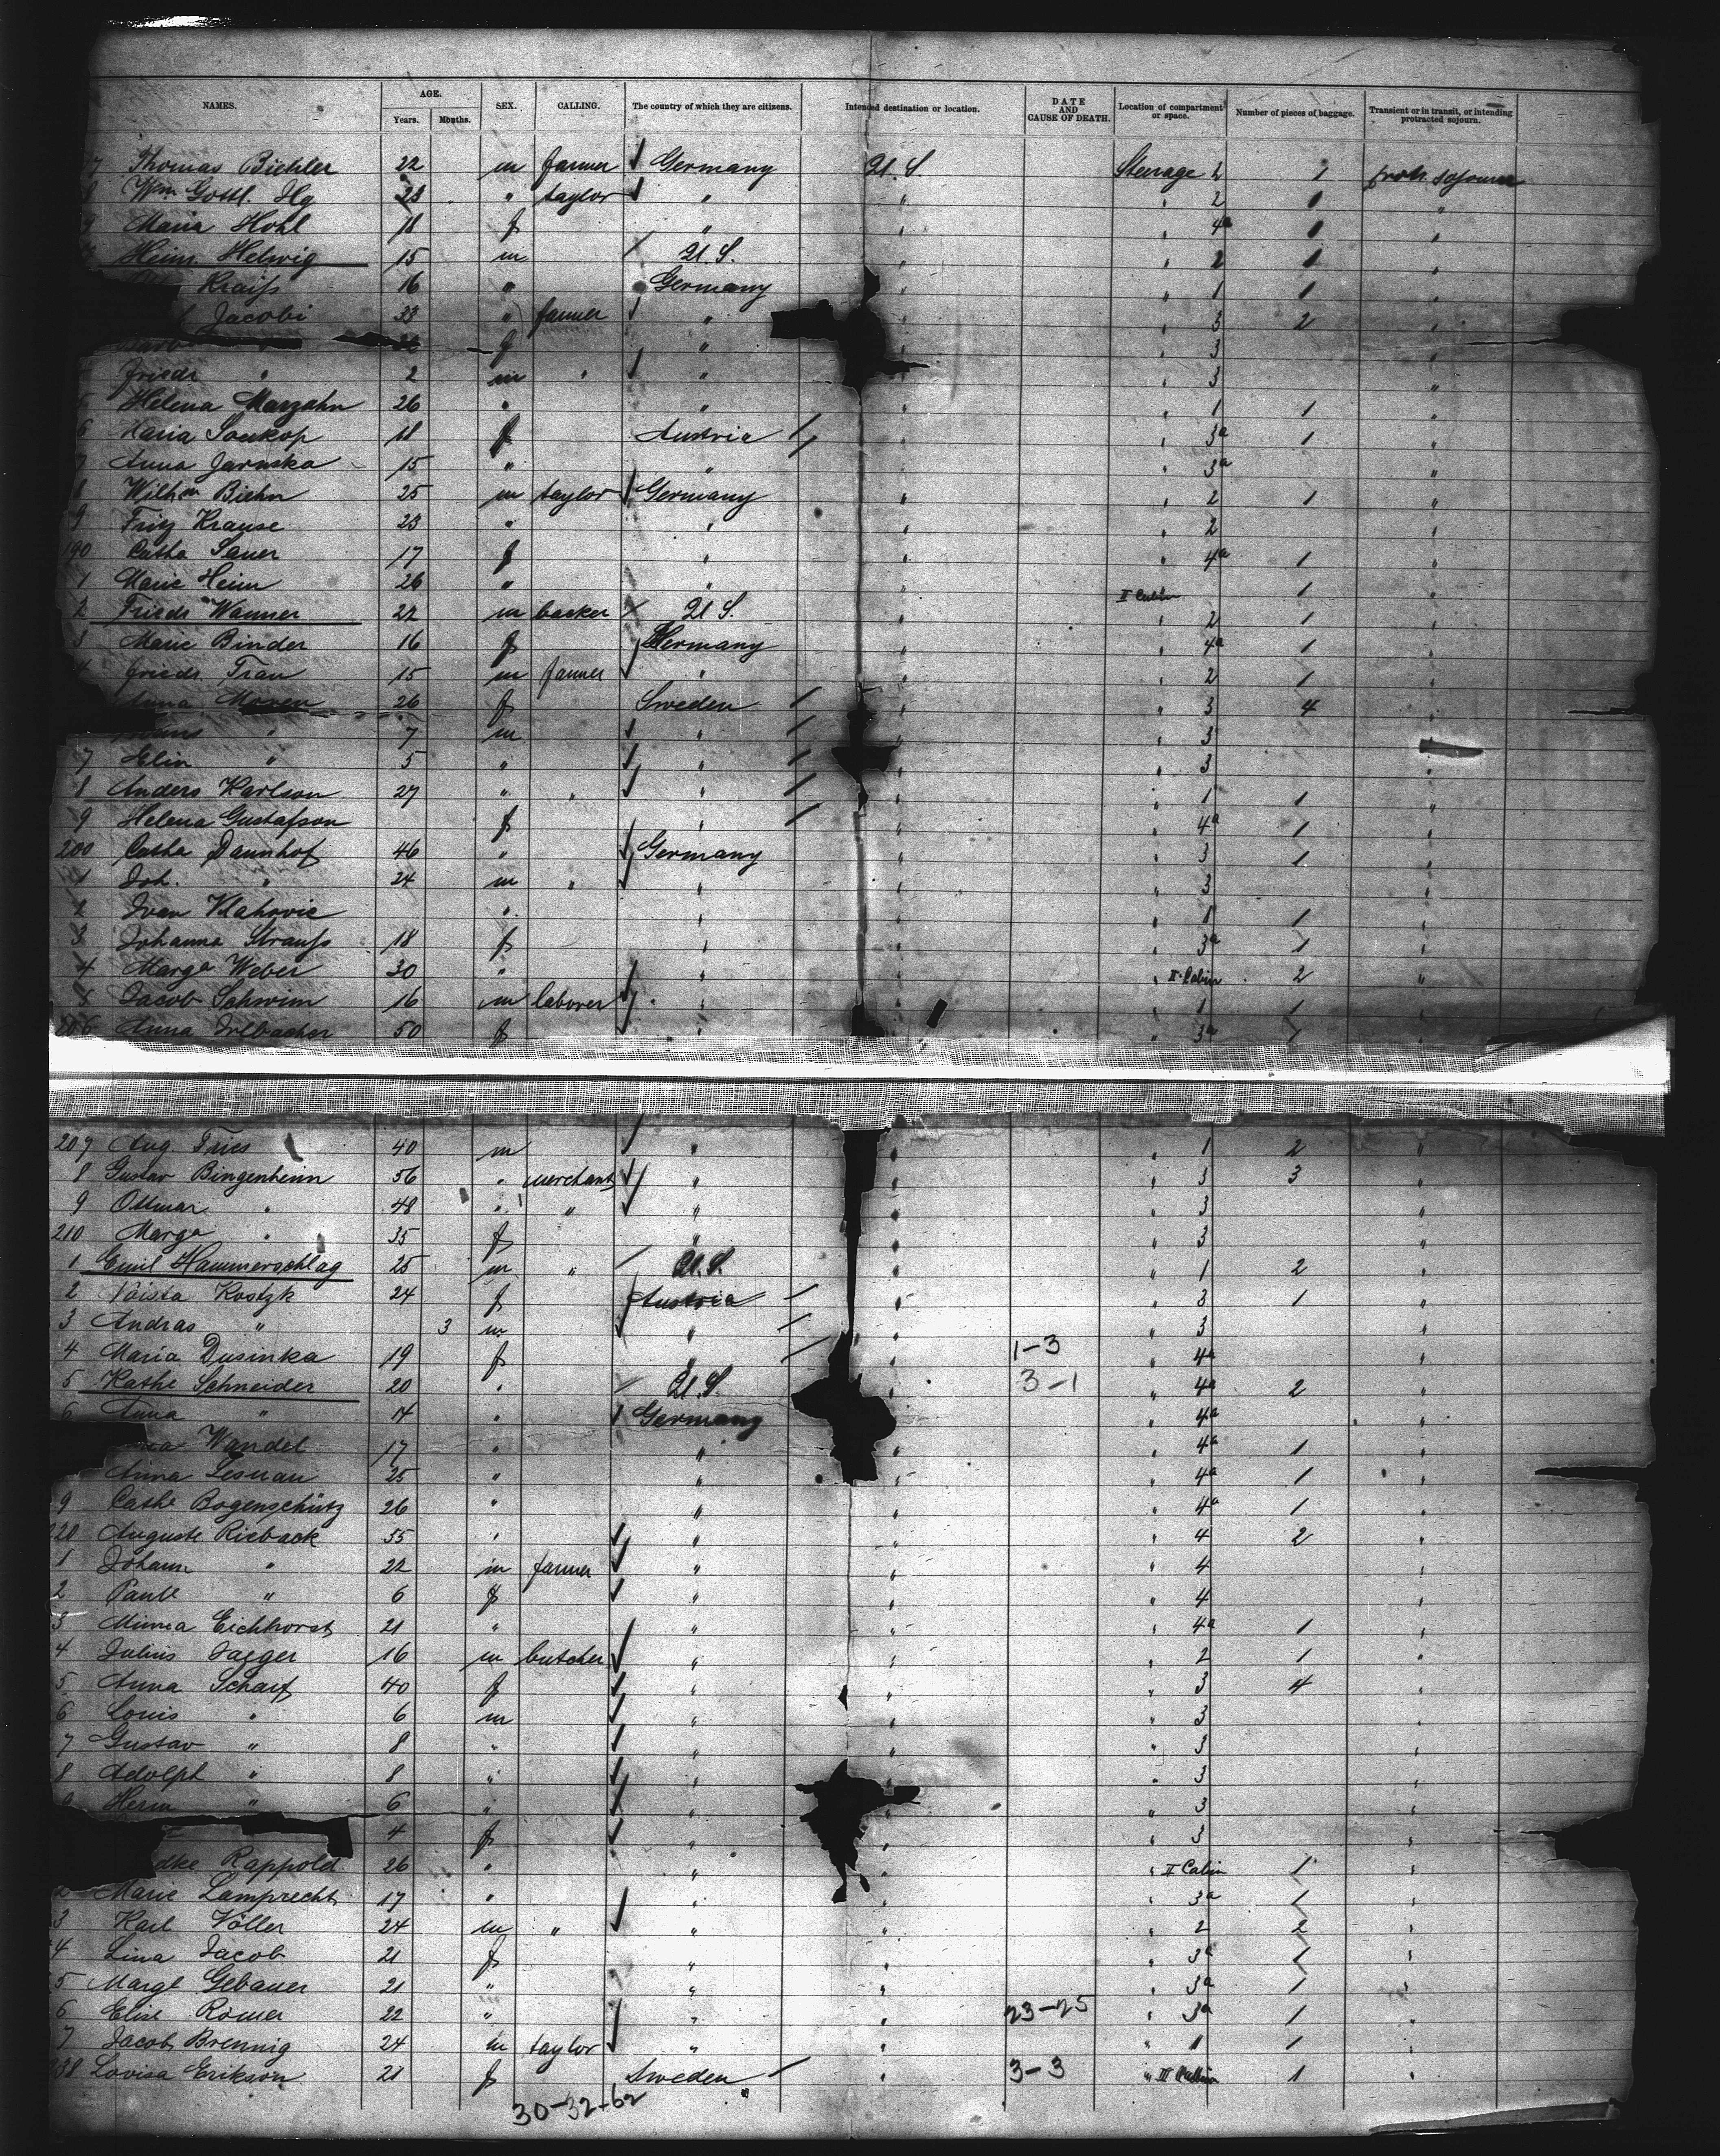 NAMES. AGE. Years. Months. SEX. CALLING. The country of which they are citizens. Intended destination or location. DATE AND CAUSE OF DEATH. Location of compartment or space. Number of pieces of baggage. Transient or in transit, or intending protracted sojourn.
7 Thomas Biehler 22 m farmer Germany U.S. Steerage 2 1 prot. sojourn
8 Wm Gottl. Ilg 23 " taylor " " " 2 1 "
9 Maria Hohl 18 f " " " 4a 1 "
Heinr. Helwig 15 m U.S. " " 2 1 "
Kraiss 16 " Germany " " 1 1 "
Jacobi 33 " farmer " " " 3 2 "
" f " " " 3 "
Friedr " 2 m " " " " 3 "
5 Helena Marzahn 26 " " " " 1 1 "
6 Maria Soukop 18 f Austria " " 3a 1 "
7 Anna Jaruska 15 " " " " 3a "
8 Wilhm Biehn 25 m taylor Germany " " 2 1 "
9 Fritz Krause 23 " " " " 2 "
190 Catha Sauer 17 f " " " 4a 1 "
1 Marie Heim 26 " " " II Cabin 1 "
2 Friedr Wanner 22 m backer U.S. " " 2 1 "
3 Marie Binder 16 f Germany " " 4a 1 "
4 Friedr. Trau 15 m farmer " " " 2 1 "
Anna 26 f Sweden " " 3 4 "
" 7 m " " " 3 "
7 Elin " 5 " " " " 3 "
8 Anders Karlson 27 " " " " " 1 1 "
9 Helena Gustafson f " " " 4a 1 "
200 Catha Daunhof 46 " Germany " " 3 1 "
1 Joh. " 24 m " " " " 3 "
2 Ivan Vlahovic " " " " 1 1 "
3 Johanna Strauss 18 f " " " 3a 1 "
4 Marga Weber 30 " " " " II Cabin 2 "
5 Jacob Schwim 16 m laborer " " " 1 1 "
206 Anna Irlbacher 50 f " " " 3a 1 "
207 Aug. Fries 40 m " " " 1 2 "
8 Gustav Bingenheim 56 " merchant " " " 3 3 "
9 Ottmar " 48 " " " " " 3 "
210 Marga " 35 f " " " 3 "
1 Emil Hammerschlag 25 m " U.S. " " 1 2 "
2 Kostzk 24 f Austria " " 3 1 "
3 Andras " 3 m " " " 3 "
4 Maria Dusinka 19 f " " 1-3 " 4a "
5 Kathe Schneider 20 " U.S. " 3-1 " 4a 2 "
6 Anna " 14 " Germany " " 4a "
Wandel 17 " " " " 4a 1 "
Anna Lesnau 25 " " " " 4a 1 "
9 Cathe Bogenschütz 26 " " " " 4a 1 "
220 Auguste Rieback 55 " " " " 4 2 "
1 Johann " 22 m farmer " " " 4 "
2 Paule " 6 f " " " 4 "
3 Minna Eichhorst 21 " " " " 4a 1 "
4 Julius Jaeger 16 m butcher " " " 2 1 "
5 Anna Scharf 40 f " " " 3 4 "
6 Louis " 6 m " " " 3 "
7 Gustav " 8 " " " " 3 "
8 Adolph " 8 " " " " 3 "
9 Herm " 6 " " " " 3 "
4 f " " " 3 "
Rappold 26 " " " II Cabin 1 "
2 Marie Lamprecht 17 " " " " 3a 1 "
3 Karl Völler 24 m " " " " 2 2 "
4 Lina Jacob 21 f " " " 3a 1 "
5 Margt Gebauer 21 " " " " 3a 1 "
6 Elise Römer 22 " " " 23-25 " 3a 1 "
7 Jacob Brennig 24 m taylor " " " 1 1 "
238 Lovisa Erikson 21 f Sweden " 3-3 " III Cabin 1 "
30-32-62